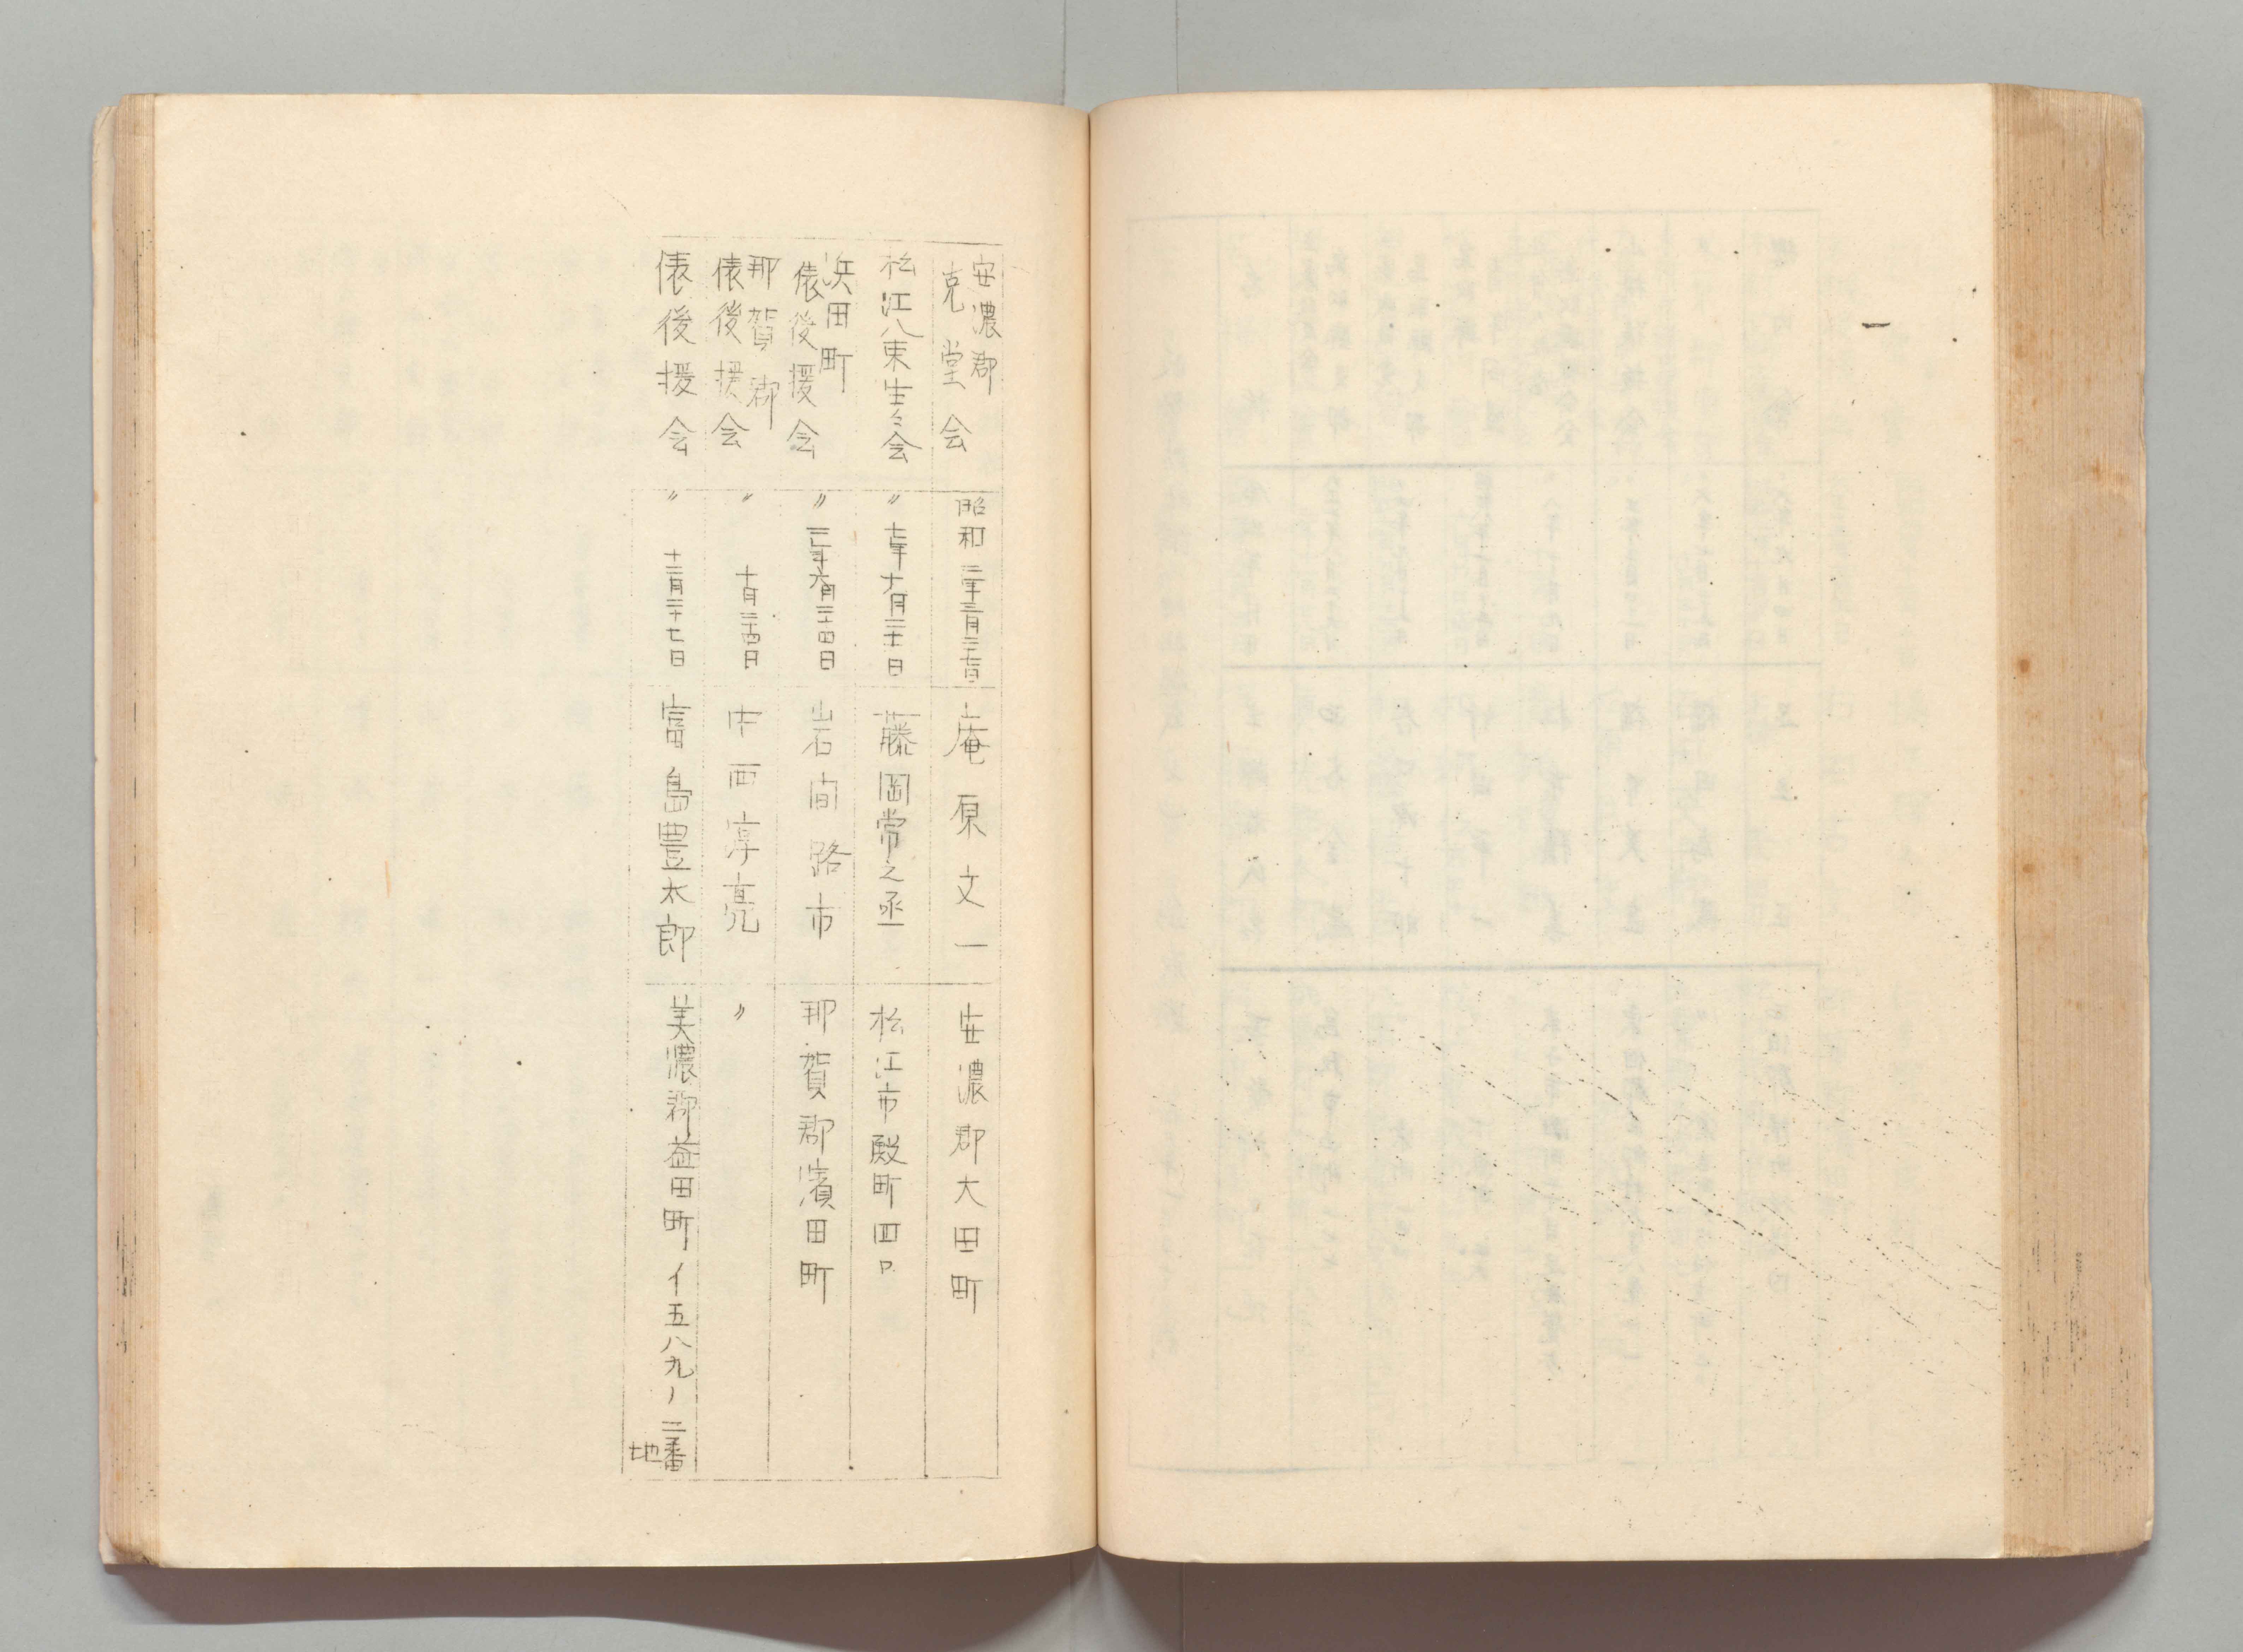 安濃郡
克堂会
昭和二年三月二十七日
庵原文一
安濃郡大田町
松江八束生々会
〃七年十月二十一日
藤岡常之丞
松江市殿町四〇
浜田町
俵後援会
〃三年六月二十四日
岩間路市
那賀郡濱田町
那賀郡
俵後援会
〃十月二十四日
中西淳亮
〃
俵後援会
〃十二月二十七日
富島豊太郎
美濃郡益田町イ五八九ノ二番
地